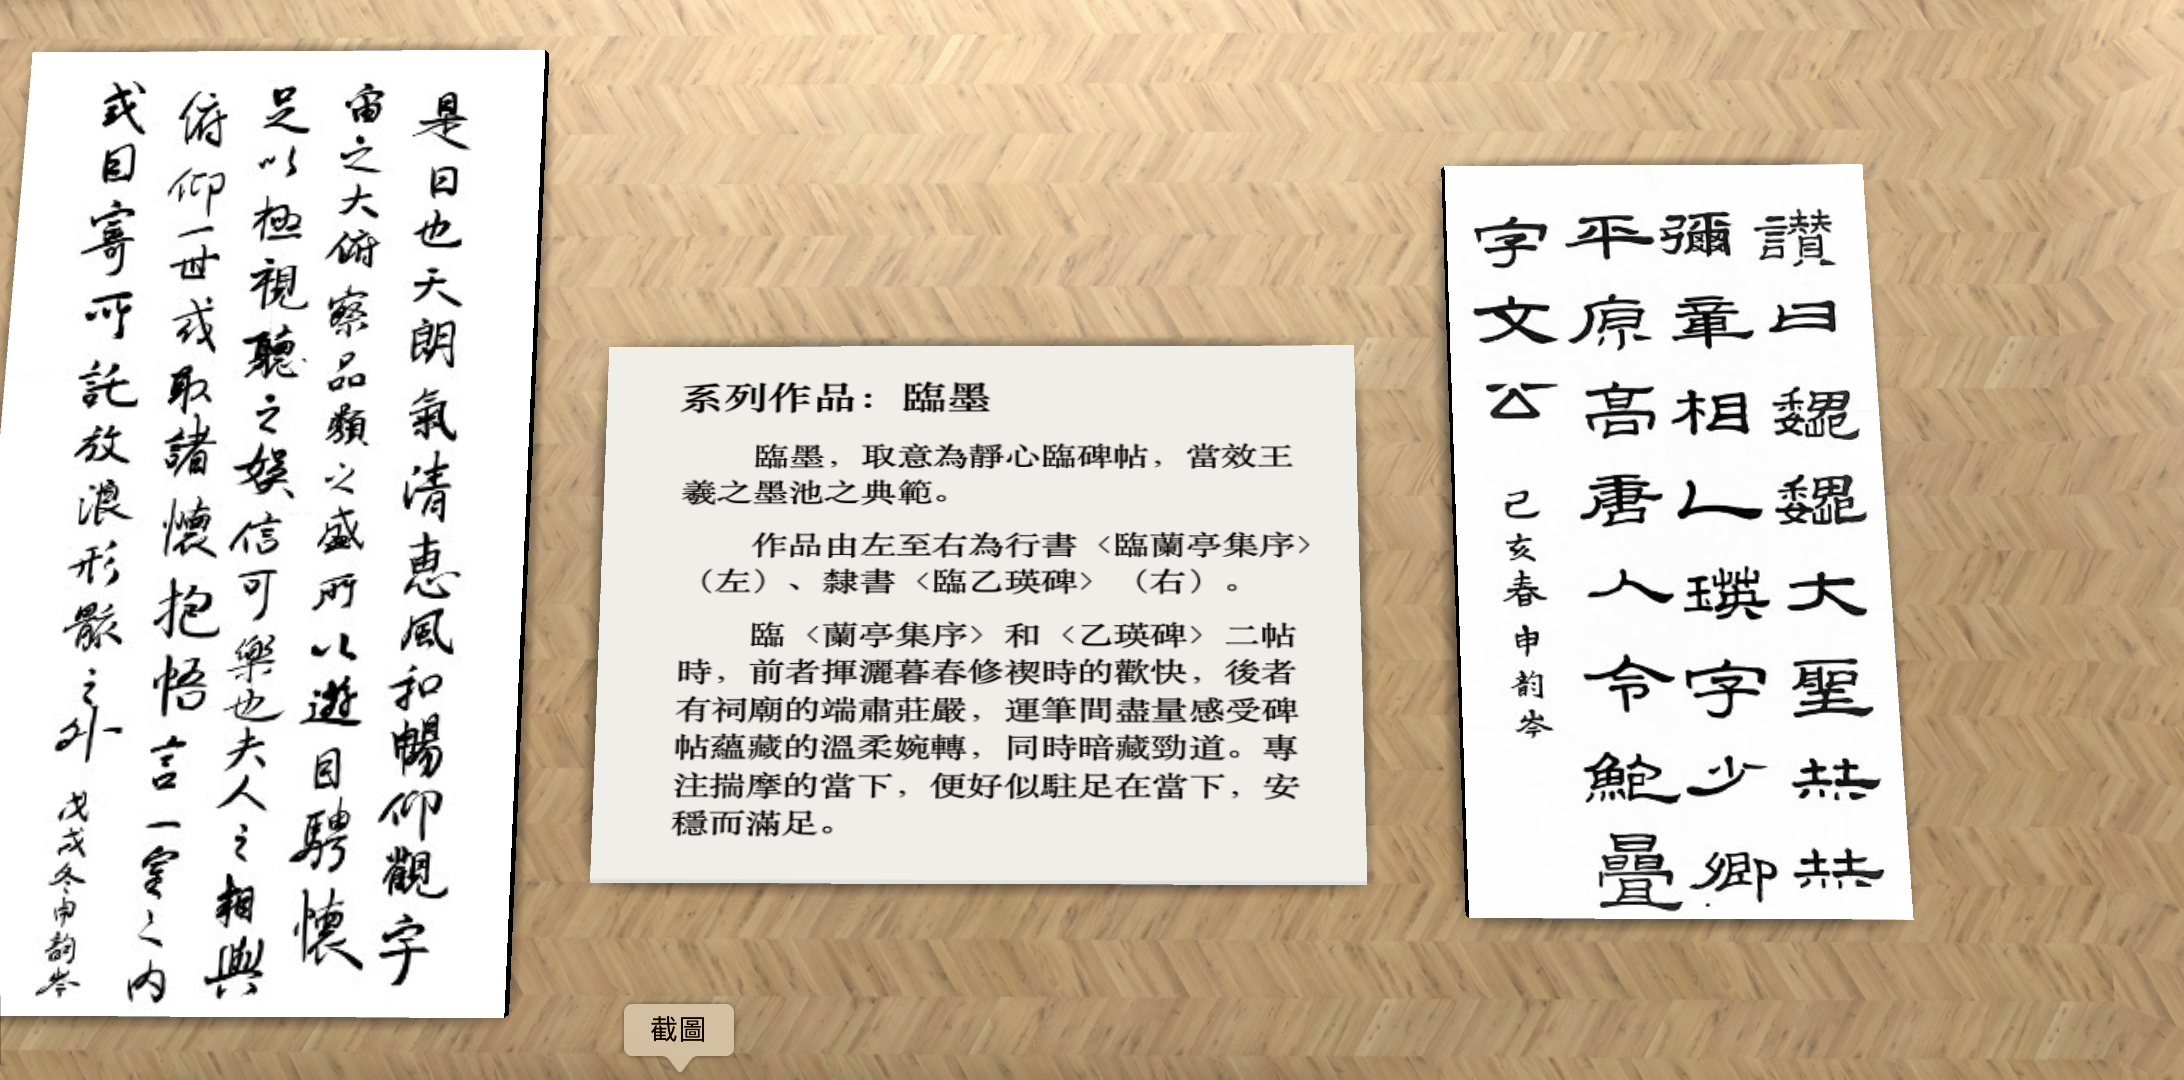 是日也天朗氣清惠風和暢仰觀宇
宙之大俯察品類之盛所以遊目騁懷
足以極視聽之娛信可樂也夫人之相與
俯仰一世或取諸懷抱悟言一室之內
或因寄所託放浪形骸之外
戊戌冬申韵岑
系列作品：臨墨
臨墨，取意為靜心臨碑帖，當效王
羲之墨池之典範。
作品由左至右為行書〈臨蘭亭集序〉
（左）、隸書〈臨乙瑛碑〉（右）。
臨〈蘭亭集序〉和〈乙瑛碑〉二帖
時，前者揮灑暮春修禊時的歡快，後者
有祠廟的端肅莊嚴，運筆間盡量感受碑
帖蘊藏的溫柔婉轉，同時暗藏勁道。專
注揣摩的當下，便好似駐足在當下，安
穩而滿足。
讃曰巍巍大聖赫赫
彌章相乙瑛字少卿
平原高唐人令鮑疊
字文公
己亥春申韵岑
截圖